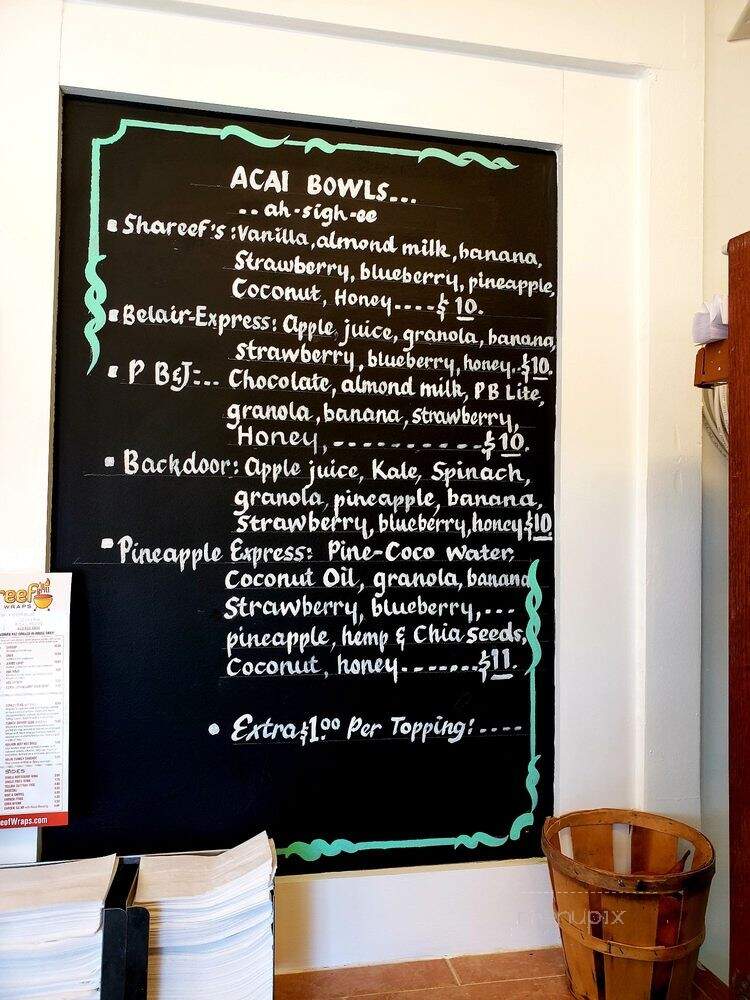 ACAI BOWLS...
.. ah-sigh-ee
Shareef's: Vanilla, almond milk, banana,
Strawberry, blueberry, pineapple,
Coconut, Honey....$10.
Belair-Express: Apple juice, granola, banana,
Strawberry, blueberry, honey..$10.
P B&J:... Chocolate, almond milk, PB Lite,
granola, banana, strawberry,
Honey,..........$10.
Backdoor: Apple juice, Kale, Spinach,
granola, pineapple, banana,
Strawberry, blueberry, honey $10
Pineapple Express: Pine-Coco water,
Coconut Oil, granola, banana
Strawberry, blueberry,...
pineapple, hemp & Chia seeds,
Coconut, honey.......$11.
Extra $1.00 Per Topping:....
reef's
WRAPS
SIDES
eefWraps.com
menupix